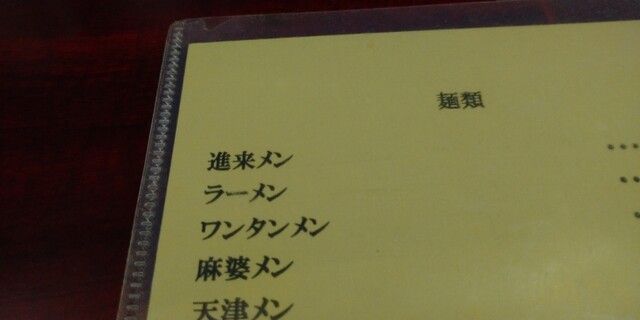 麺類
進来メン
ラーメン
ワンタンメン
麻婆メン
天津メン